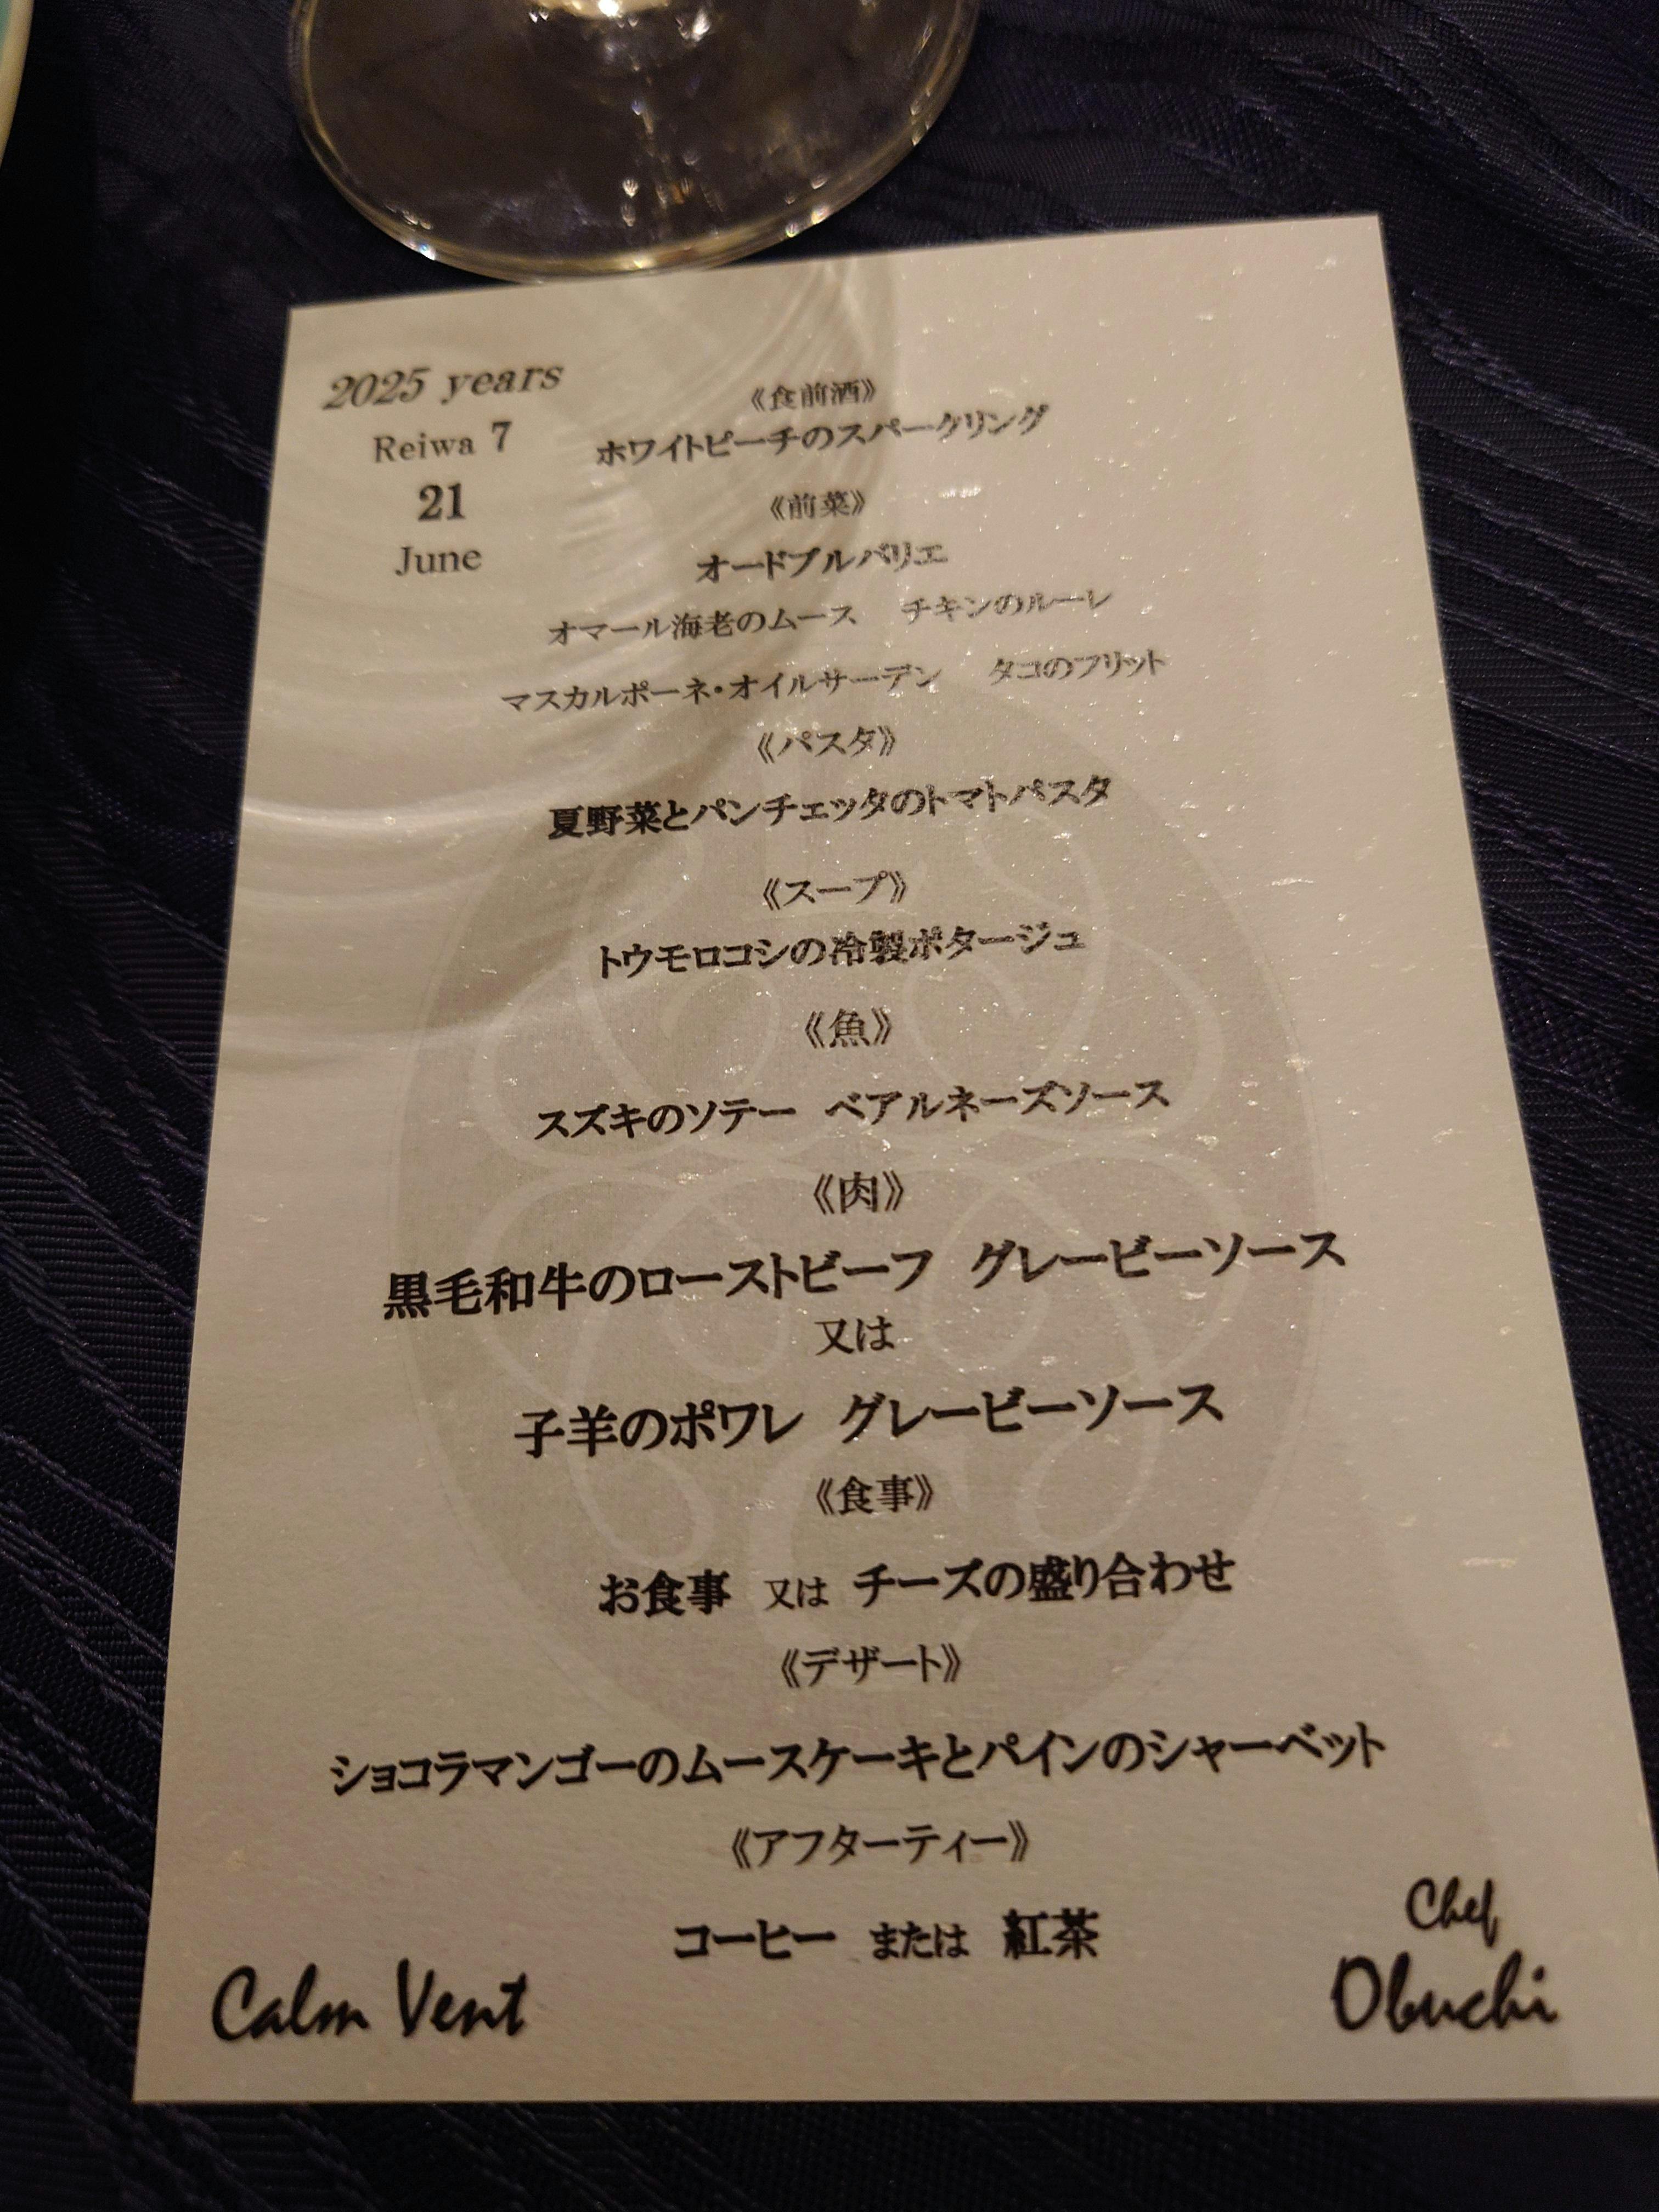 2025 years
Reiwa 7
21
June
《食前酒》
ホワイトピーチのスパークリング
《前菜》
オードブルバリエ
オマール海老のムース　チキンのルーレ
マスカルポーネ・オイルサーデン　タコのフリット
《パスタ》
夏野菜とパンチェッタのトマトパスタ
《スープ》
トウモロコシの冷製ポタージュ
《魚》
スズキのソテー　ベアルネーズソース
《肉》
黒毛和牛のローストビーフ　グレービーソース
又は
子羊のポワレ　グレービーソース
《食事》
お食事　又は　チーズの盛り合わせ
《デザート》
ショコラマンゴーのムースケーキとパインのシャーベット
《アフターティー》
コーヒー　または　紅茶
Calm Vent
Chef
Obuchi